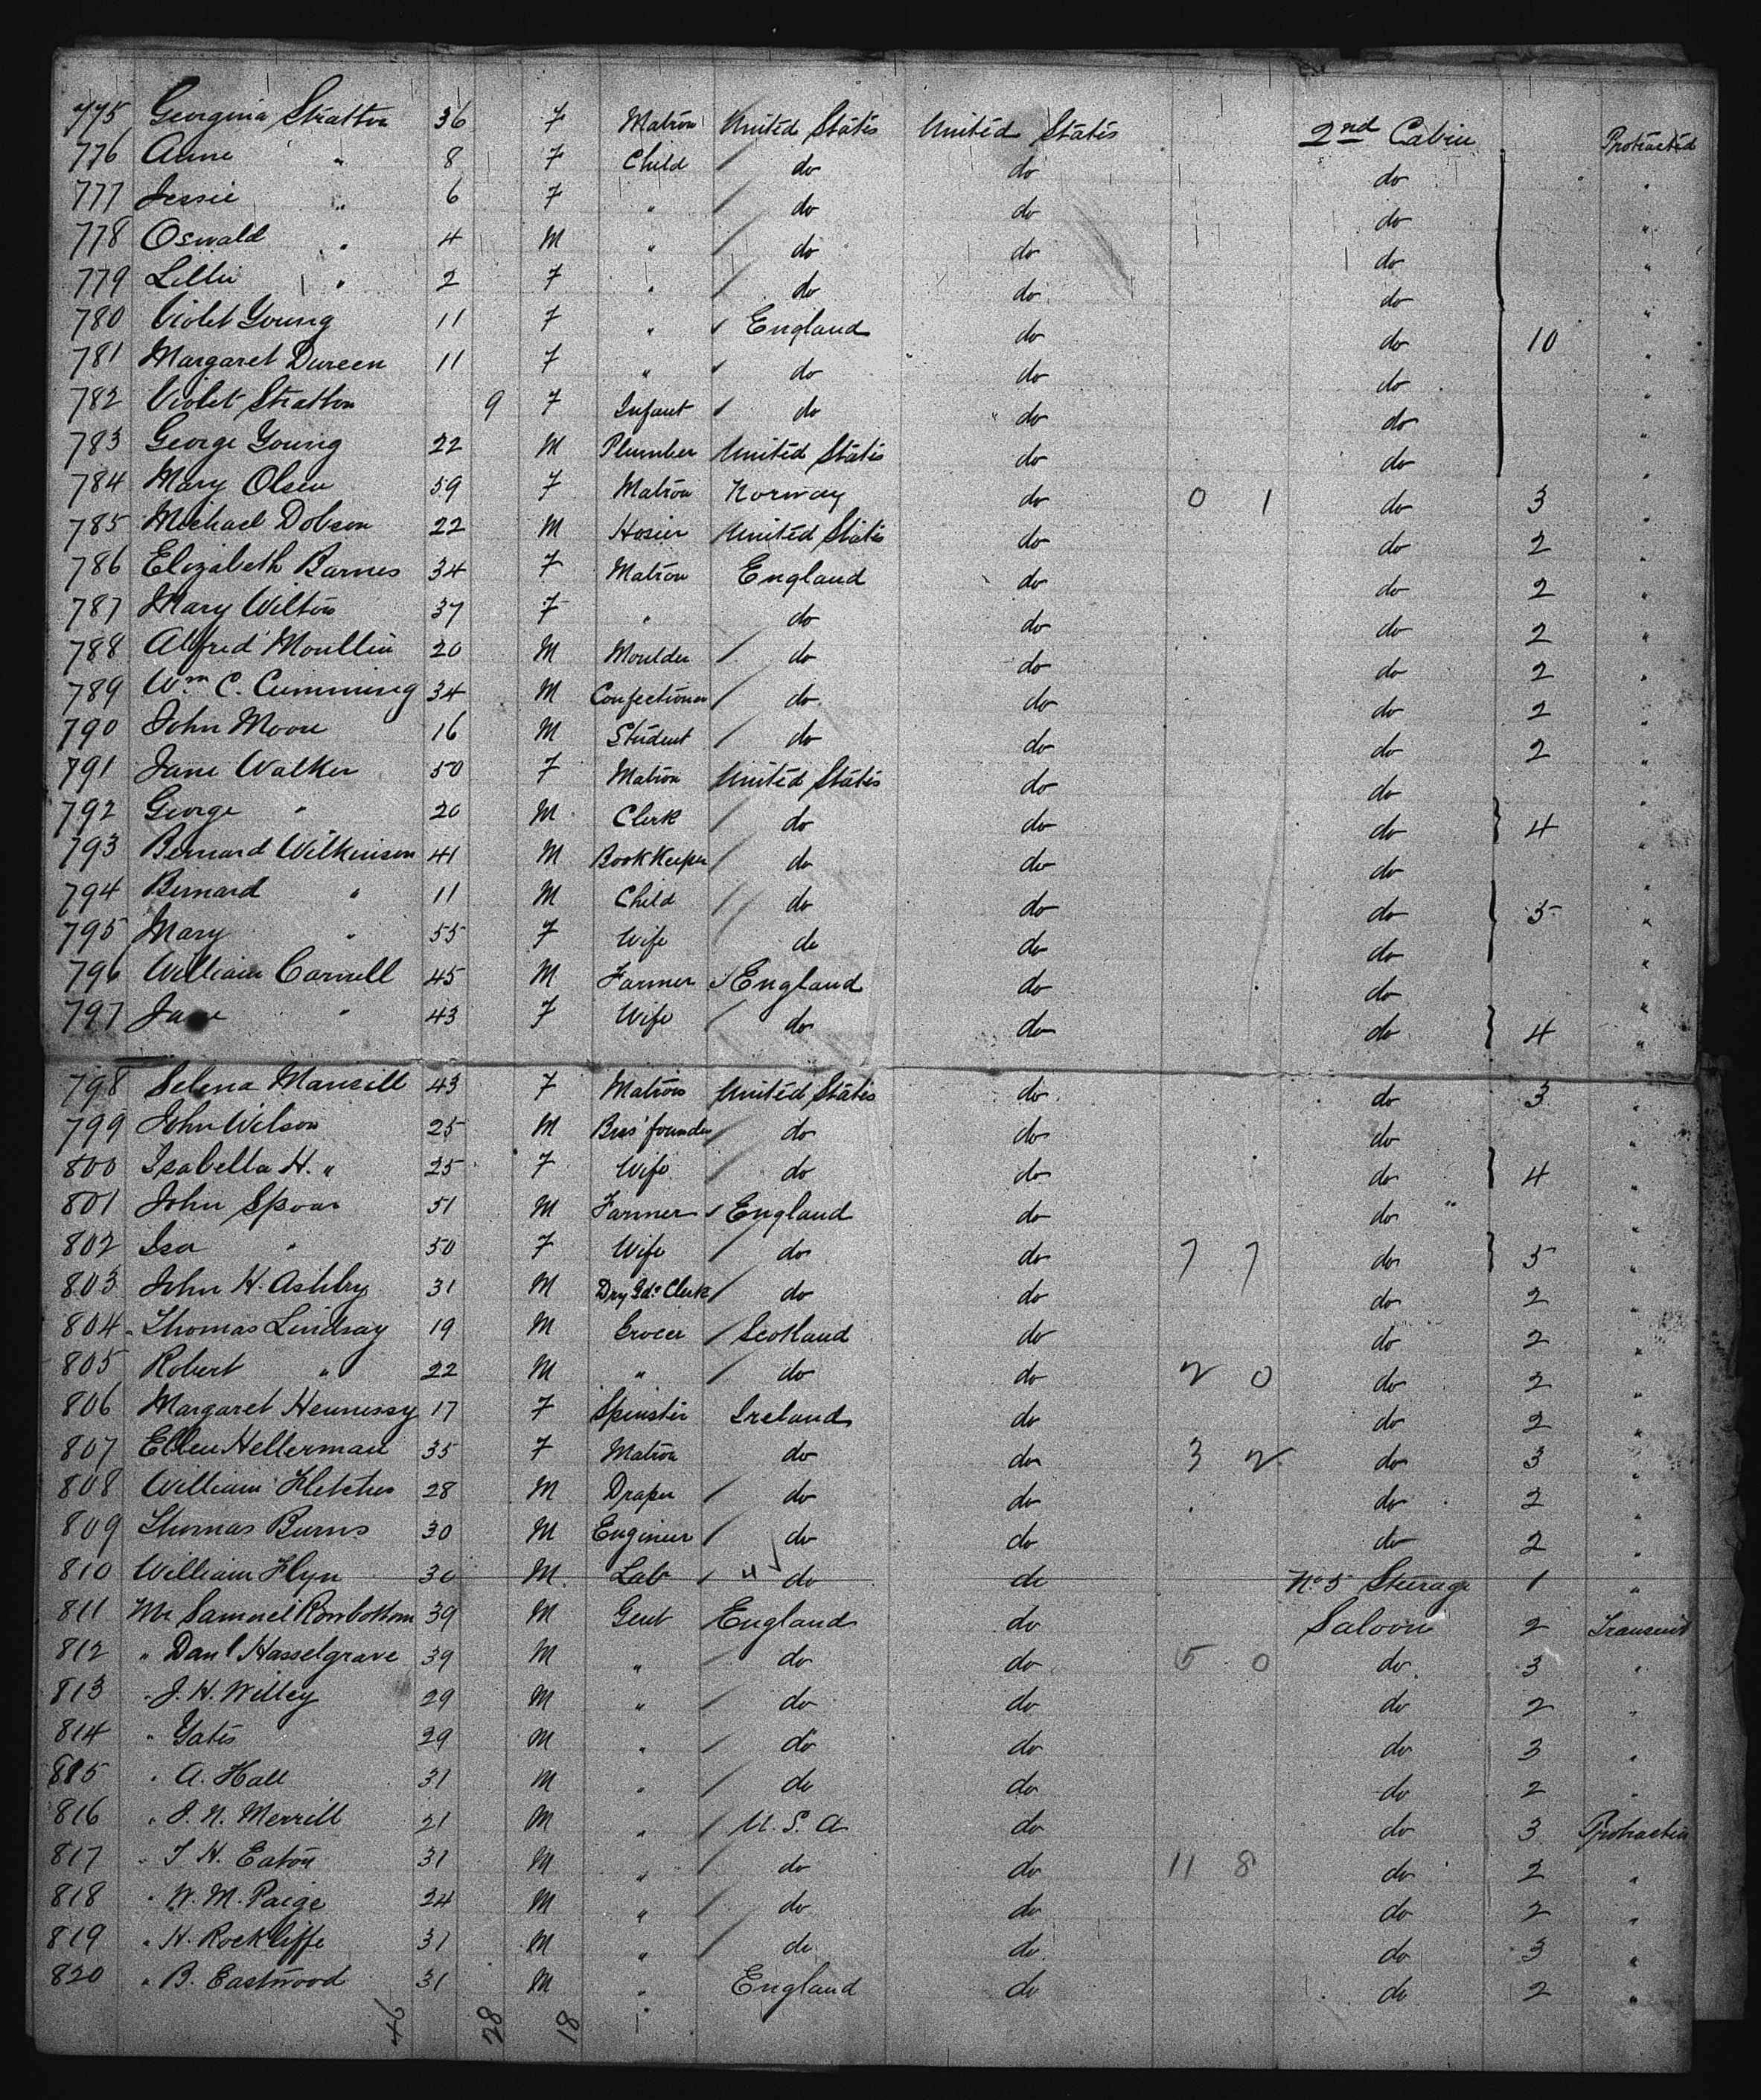 775 Georgina Stratton 36 F Matron United States United States 2nd Cabin Protracted
776 Anne " 8 F Child / do do do "
777 Jessie " 6 F " / do do do "
778 Oswald " 4 M " / do do do "
779 Lillie " 2 F " / do do do "
780 Violet Young 11 F " / England do do 10 "
781 Margaret Dureen 11 F " / do do do "
782 Violet Stratton 9 F Infant / do do do "
783 George Young 22 M Plumber United States do do "
784 Mary Olsen 59 F Matron Norway do 0 1 do 3 "
785 Michael Dobson 22 M Hosier United States do do 2 "
786 Elizabeth Barnes 34 F Matron England do do 2 "
787 Mary Wilton 37 F " do do do 2 "
788 Alfred Moullin 20 M Moulder / do do do 2 "
789 Wm C. Cumming 34 M Confectioner / do do do 2 "
790 John Moore 16 M Student / do do do 2 "
791 Jane Walker 50 F Matron United States do do "
792 George " 20 M Clerk / do do do } 4 "
793 Bernard Wilkinson 41 M Book Keeper / do do do "
794 Bernard " 11 M Child / do do do 5 "
795 Mary " 55 F Wife / do do do "
796 William Carvell 45 M Farmer / England do do "
797 43 F Wife / do do do } 4 "
798 Selena Mansill 43 F Matron United States do do 3 "
799 John Wilson 25 M founder / do do do "
800 Isabella H. " 25 F Wife / do do do } 4 "
801 John Spoor 51 M Farmer / England do do "
802 Isa " 50 F Wife / do do 7 7 do } 5 "
803 John H. Ashby 31 M Dry Gds Clerk / do do do 2 "
804 Thomas Lindsay 19 M Grocer / Scotland do do 2 "
805 Robert " 22 M " / do do 2 0 do 2 "
806 Margaret Hennessy 17 F Spinster Ireland do do 2 "
807 Ellen Hellerman 35 F Matron do do 3 2 do 3 "
808 William Fletcher 28 M Draper / do do do 2 "
809 Thomas Burns 30 M Engineer / do do do 2 "
810 William Flyn 30 M Lab / " do do No 5 Steerage 1 "
811 Mr Samuel Rowbottom 39 M Gent England do Saloon 2 Transient
812 " Danl Hasselgrave 39 M " / do do 5 0 do 3 "
813 " J. H. Willey 29 M " / do do do 2 "
814 " Yates 29 M " / do do do 3 "
815 " A. Hall 31 M " / do do do 2 "
816 " J. N. Merrill 21 M " / U. S. A do do 3 Protracted
817 " T H. Eaton 31 M " / do do 11 8 do 2 "
818 " W. M. Paige 24 M " / do do do 2 "
819 " H. Rockliffe 31 M " / do do do 3 "
820 " B. Eastwood 31 M " England do do 2 "
46 28 18